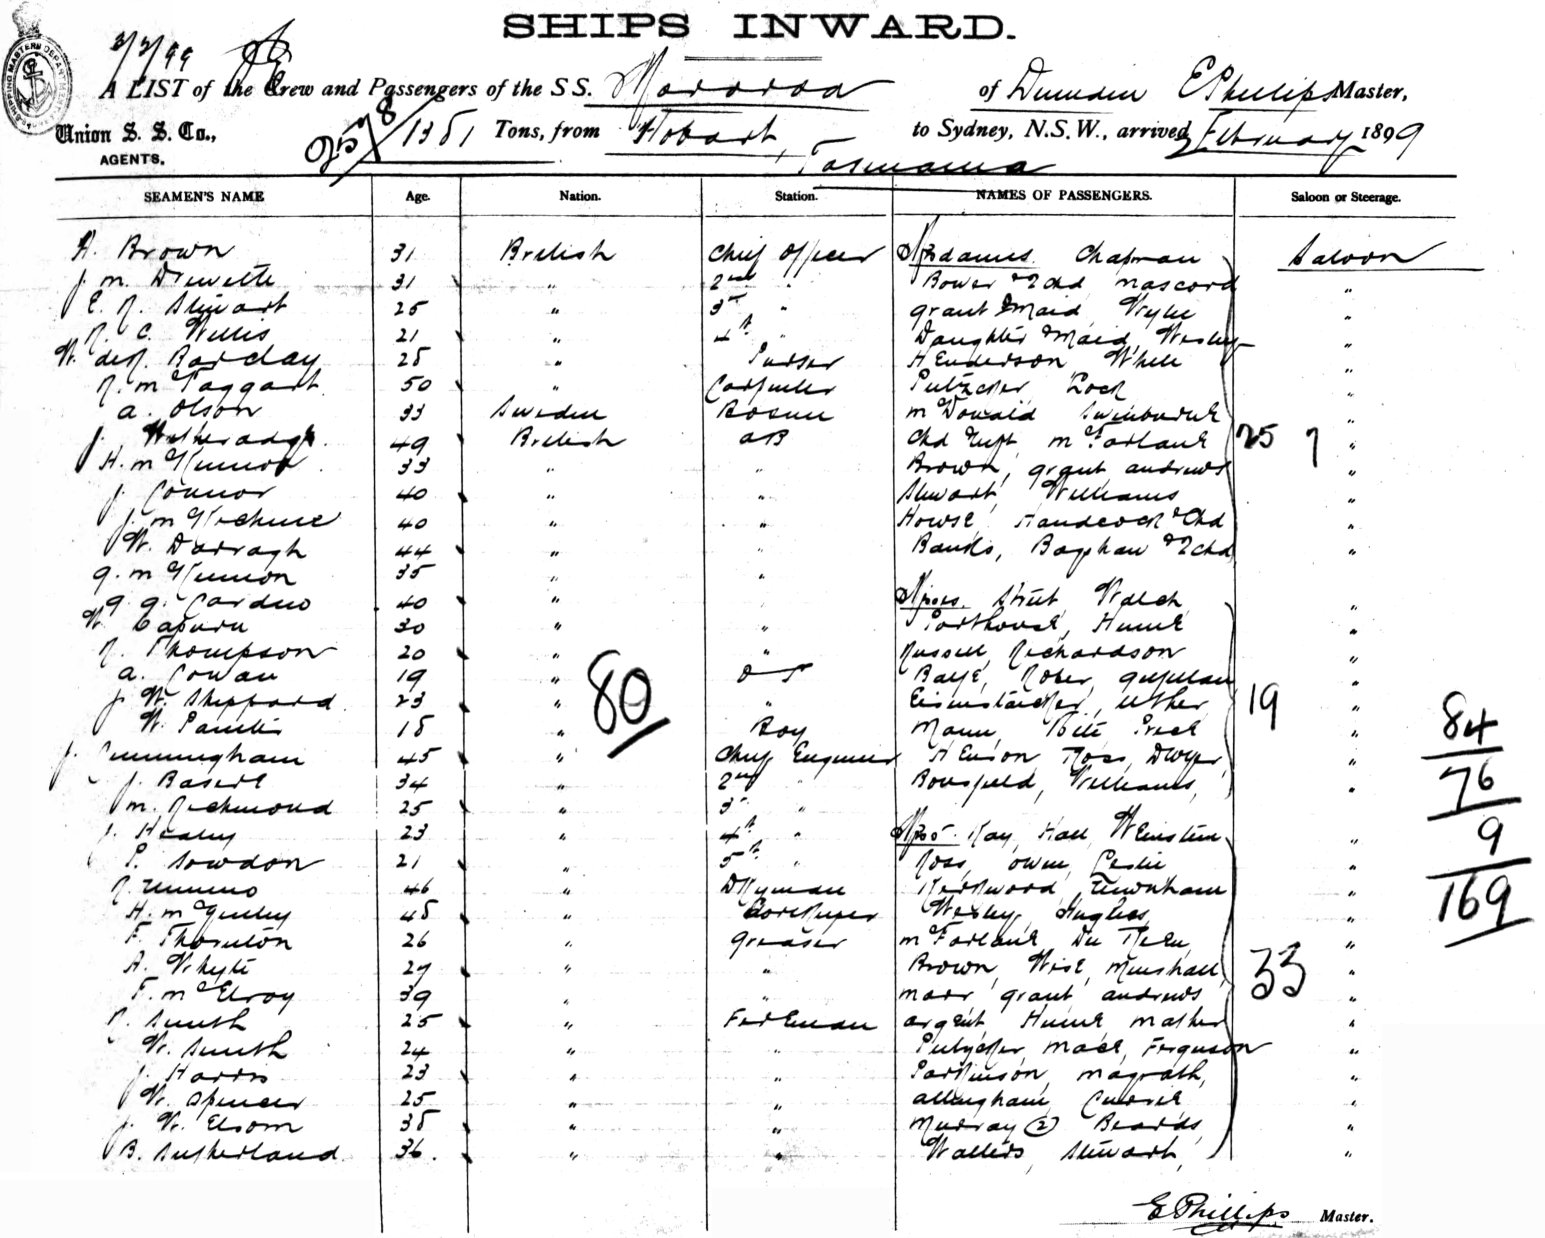 SHIPS INWARD.
2/2/99
A LIST of the Crew and Passengers of the SS. Mararoa of Dunedin E Phillips Master,
Union S. S. Co., 2578/1381 Tons, from Hobart, to Sydney, N.S.W., arrived 2 February 1899
AGENTS. Tasmania
SEAMEN'S NAME Age. Nation. Station. NAMES OF PASSENGERS. Saloon or Steerage.
A. Brown 31 British Chief Officer Mesdames Chapman Saloon
J. M. 31 " 2nd " Bower & 2 Chd Mascord "
E. R. Stewart 25 " 3rd " Grant & Maid, Wylie "
R. C. Willis 21 " 4th " Daughter Maid, Wesley "
W. deR. Barclay 28 " Purser Henderson White "
R. McTaggart 50 " Carpenter Lock "
A. Olson 33 Sweden Bosun McDonald Swinburne "
J. 49 British AB Chd McFarlane 25 7 "
H. McKinnon 33 " " Brown, Grant Andrews "
J. Connor 40 " " Stewart Williams "
J. McKechnie 40 " " Howse Handcock & Chd "
W. Darragh 44 " " Banks, Bagshaw & 2 Chd "
A. McKinnon 35 " "
G. G. 40 " Misses Street, Walch "
W. 30 " " Porthouse, Hume "
R. Thompson 20 " " Russell, Richardson "
A. Cowan 19 " OS "
J. W. Sheppard 23 " " Usher 19 "
W. 18 " Boy Mann, Price "
J. Cunningham 45 " Chief Engineer Ross, Dwyer "
J. 34 " 2nd " Bousfield, Williams, "
M. Richmond 25 " 3rd "
J. Healey 23 " 4th " Messrs Kay, Hall, Weinstein "
P. Sowdon 21 " 5th " Ross, Owen, Leslie "
R. 46 " Dkyman Kirkwood, "
H. McGinley 48 " Storekeeper Wesley, Hughes, "
F. Thornton 26 " Greaser McFarlane "
A. Whyte 27 " " Brown, Wise, Marshall, 33 "
F. McElroy 39 " " Moar Grant Andrews "
R. Smith 25 " Fireman Argent, Hume Mather "
W. Smith 24 " " Mace, Ferguson "
J. Harris 23 " " Parkinson, Magrath, "
W. Spencer 25 " " Allingham, "
J. W. Elsom 38 " " Murray (2) "
B. Sutherland 36. " " Walters, Stewart, "
80
84
76
9
169
E Phillips Master.